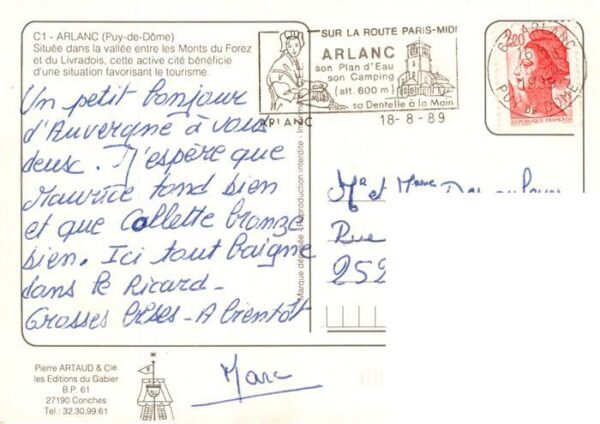 C1 - ARLANC (Puy-de-Dôme)
Située dans la vallée entre les Monts du Forez
et du Livradois, cette active cité bénéficie
d'une situation favorisant le tourisme.
Un petit bonjour
d'Auvergne à vous
deux. J'espère que
Maurice tond bien
et que Collette bronze
bien. Ici tout baigne
dans le Ricard -
Grosses bises - A bientôt
Marc
Pierre ARTAUD & Cie
les Editions du Gabier
B.P. 61
27190 Conches
Tél.: 32.30.99.61
Marque déposée - Reproduction interdite
SUR LA ROUTE PARIS-MIDI
ARLANC
son Plan d'Eau
son Camping
(alt. 600 m)
sa Dentelle à la Main
ARLANC
18-8-89
63 ARLANC
PUY DE DOME
2,20
REPUBLIQUE FRANÇAISE
Mr et Mme
Rue
252